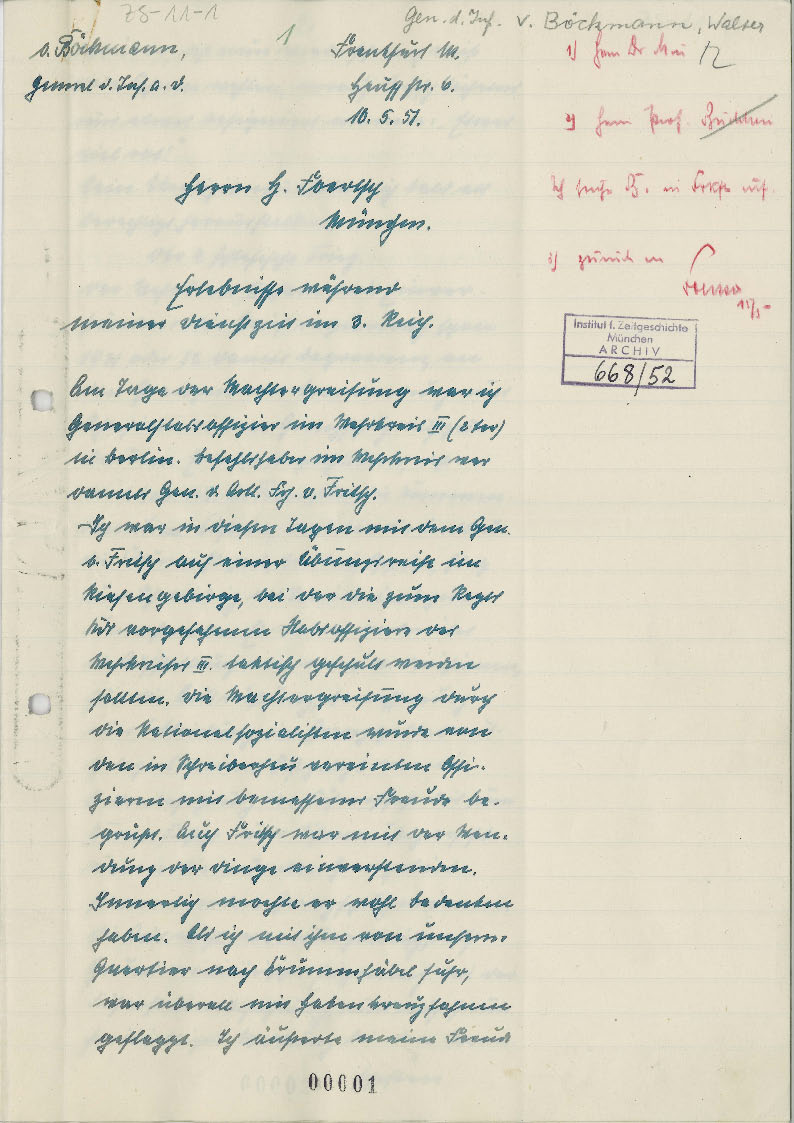 ZS-11-1
Gen. d. Inf. v. Böckmann, Walter
1
v. Böckmann,
General d. Inf. a. D.
Frankfurt M.
Str. 6.
10.5.51.
1) Herrn Dr. Mau
2) Herrn Prof.
Ich suche B. in auf.
3) zurück an
Herrn H. Foertsch
München.
Erlebnisse während
meiner Dienstzeit im 3. Reich.
Institut f. Zeitgeschichte
München
ARCHIV
668/52
Am Tage der Machtergreifung war ich
Generalstabsoffizier im Wehrkreis III (2ter)
in Berlin. Befehlshaber im Wehrkreis war
damals Gen. d. Artl. Frh. v. Fritsch.
Ich war in diesen Tagen mit dem Gen.
v. Fritsch auf einer Übungsreise im
Riesengebirge, bei der die zum Regts
Kdr vorgesehenen Stabsoffiziere des
Wehrkreises III. taktisch geschult werden
sollten. Die Machtergreifung durch
die Nationalsozialisten wurde von
den in Schreiberhau vereinten Offi-
zieren mit bemessener Freude be-
grüsst. Auch Fritsch war mit der Wen-
dung der Dinge einverstanden.
Innerlich mochte er wohl Bedenken
haben. Als ich mit ihm von unserm
Quartier nach Krummhübel fuhr,
war überall mit Hakenkreuzfahnen
geflaggt. Ich äußerte meine Freud
00001